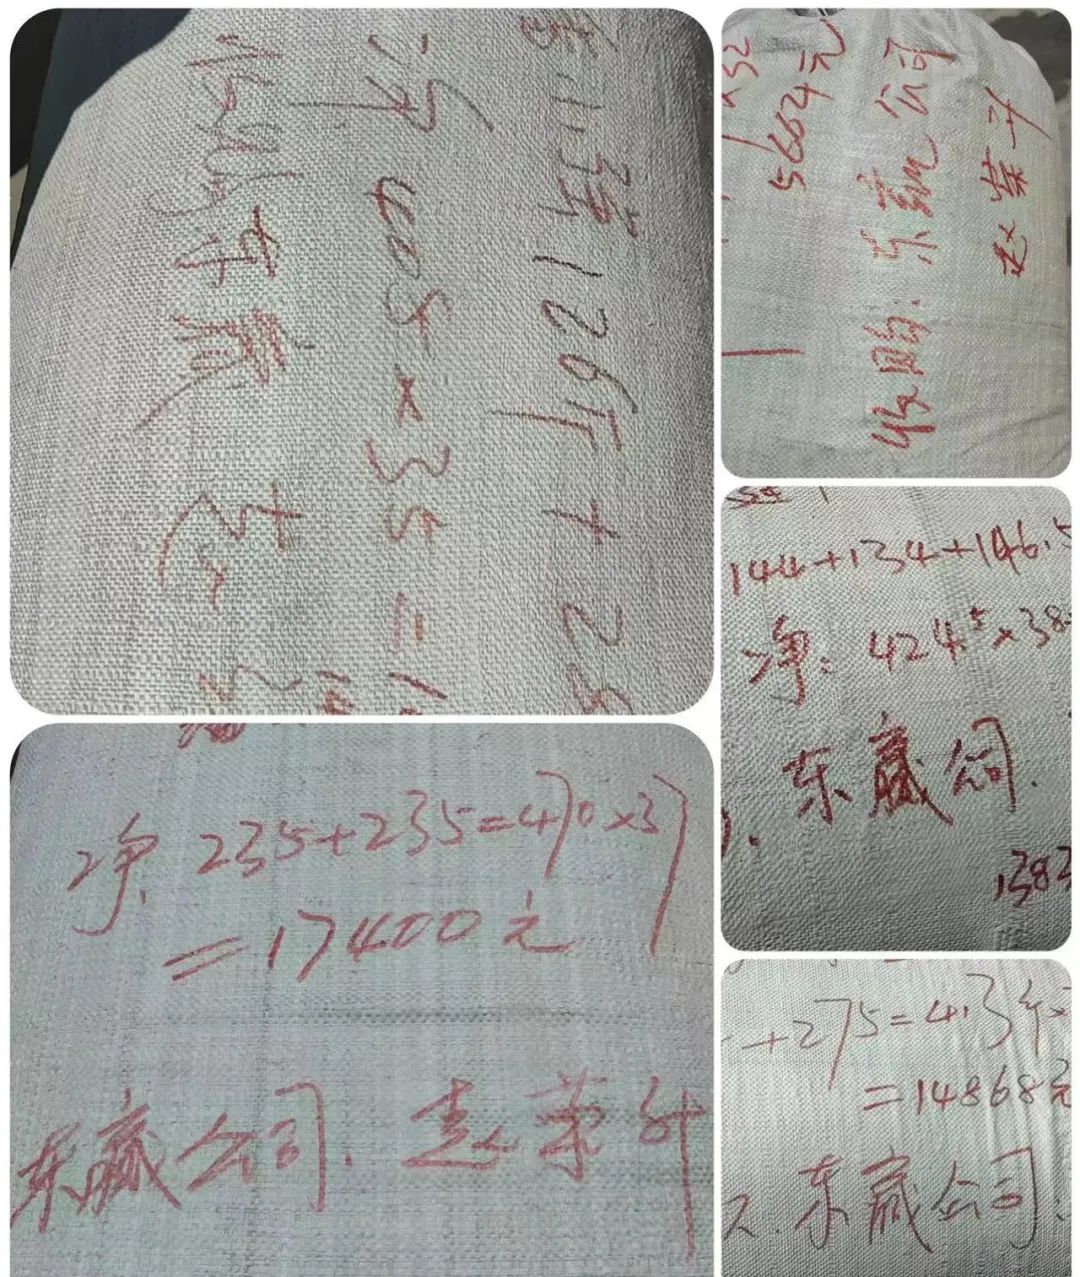 126斤+28
净405×35=1
收购东赢
5664元
收购: 东赢公司
赵荣升
144+134+146.5
净: 424.5×38
东赢公司.
1383
净. 235+235=470×37
=17400元
东赢公司. 赵荣升
+275=413斤×
=14868元
东赢公司: